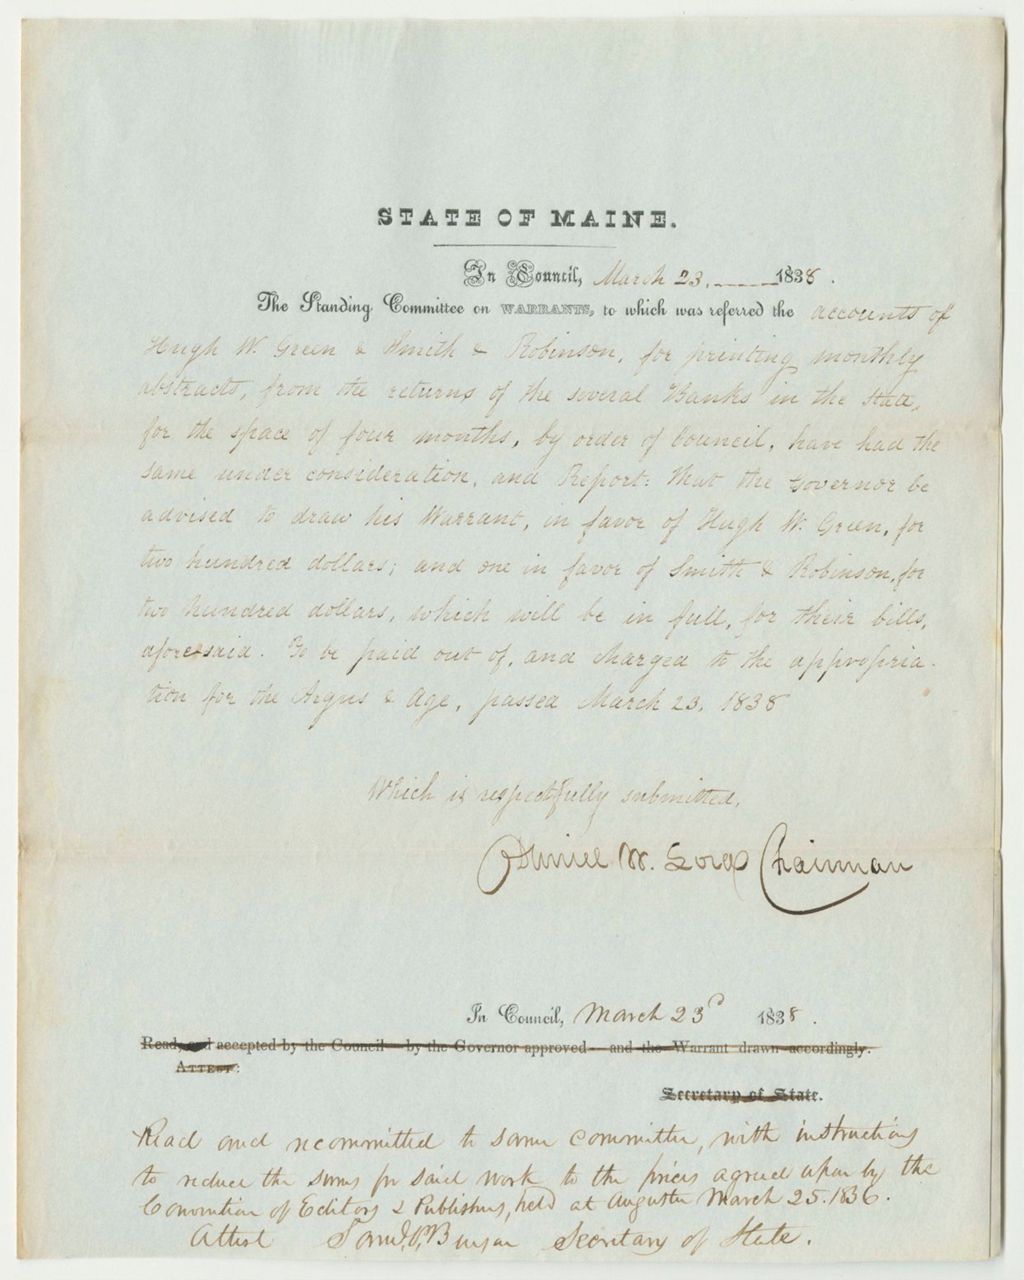 STATE OF MAINE.
In Council, March 23, 1838.
The Standing Committee on WARRANTS, to which was referred the accounts of
Hugh W. Green & Smith & Robinson, for printing monthly
abstracts, from the returns of the several Banks in the State,
for the space of four months, by order of Council, have had the
same under consideration, and Report: That the Governor be
advised to draw his Warrant, in favor of Hugh W. Green, for
two hundred dollars; and one in favor of Smith & Robinson, for
two hundred dollars, which will be in full, for their bills,
aforesaid. To be paid out of, and charged to the appropria-
tion for the Argus & Age, passed March 23, 1838
Which is respectfully submitted,
W. Chairman
In Council, March 23d 1838.
Read, and accepted by the Council—by the Governor approved—and the Warrant drawn accordingly.
ATTEST:
Secretary of State.
Read and recommitted to same committee, with instructions
to reduce the sums for said work to the prices agreed upon by the
Convention of Editors & Publishers, held at Augusta March 25. 1836.
Attest Saml. P. Benson Secretary of State.